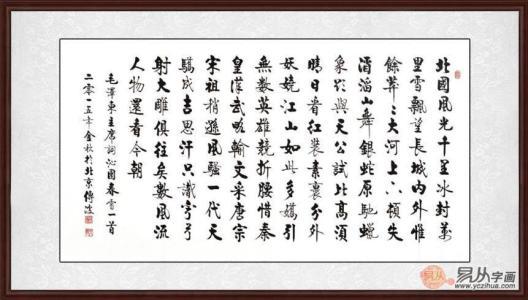 北國風光千里冰封萬
里雪飄望長城內外惟
餘莽々大河上下頓失
滔滔山舞銀蛇原馳蠟
象欲與天公試比高須
晴日看紅裝素裹分外
妖嬈江山如此多嬌引
無數英雄競折腰惜秦
皇漢武略輸文采唐宗
宋祖稍遜風騷一代天
驕成吉思汗只識彎弓
射大雕俱往矣數風流
人物還看今朝
毛澤東主席詞沁園春雪一首
二零一五年金秋於北京傅
易从字画
www.yczihua.com